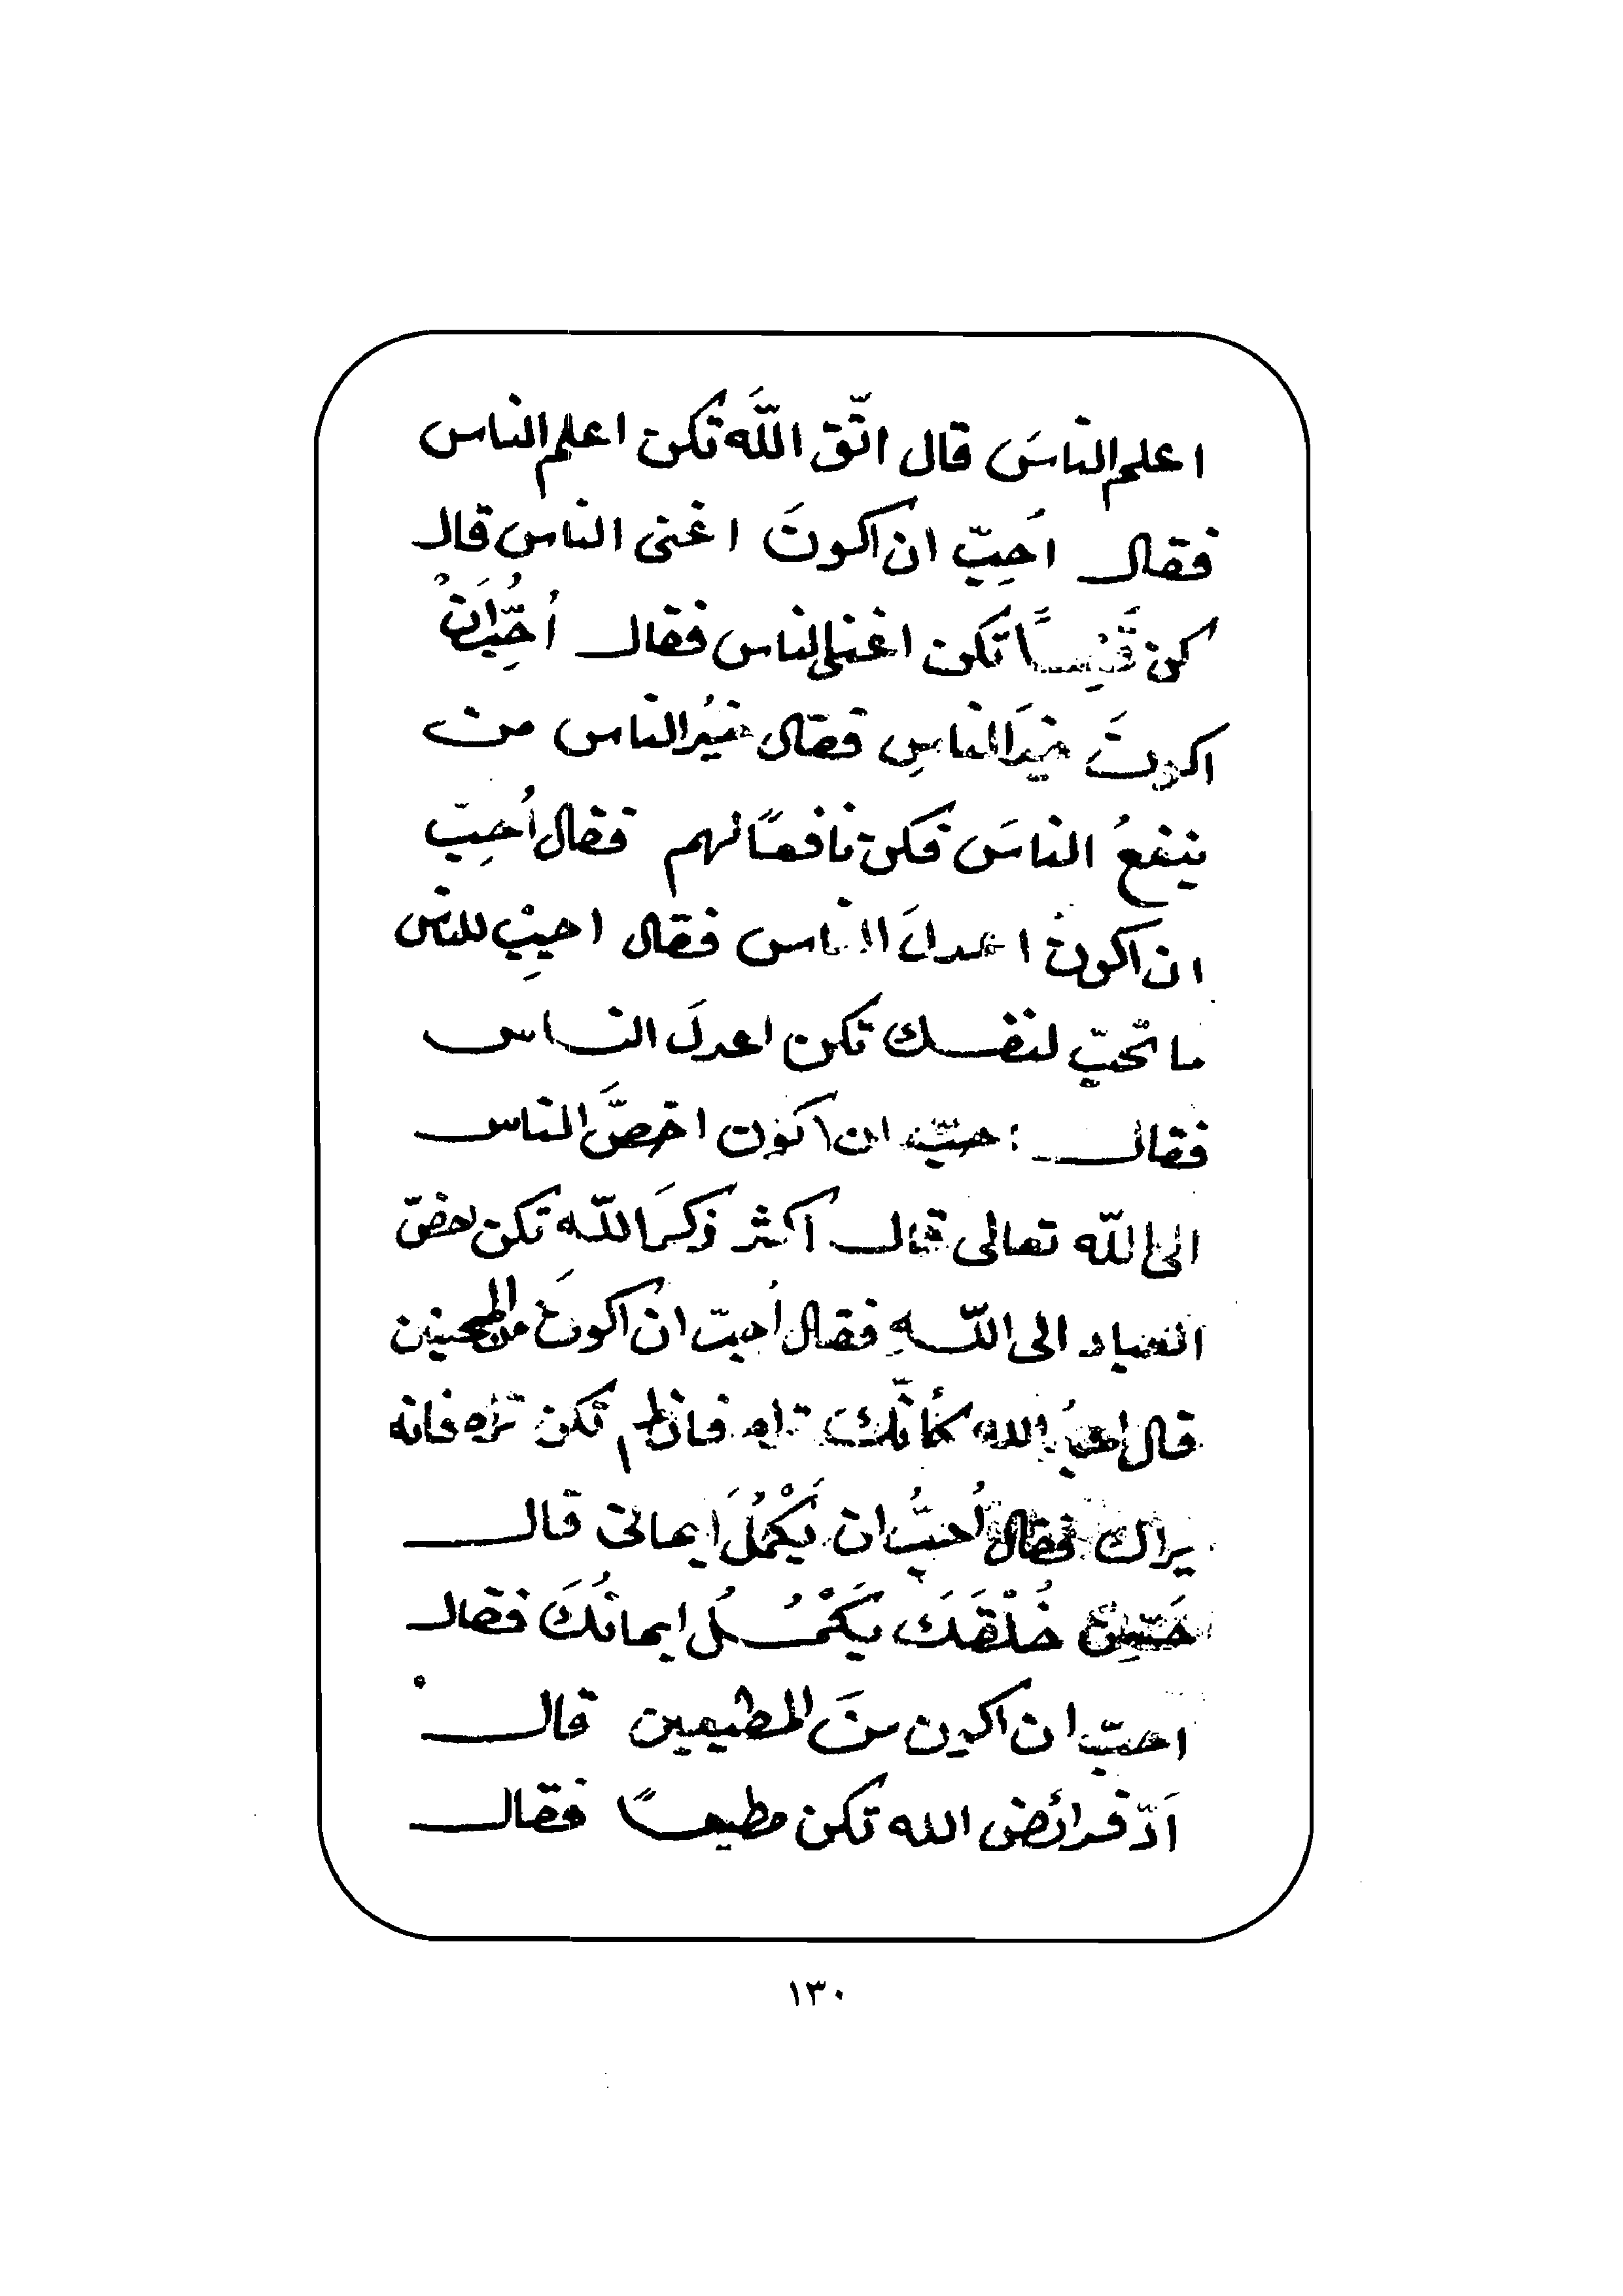 اعلم الناسَ قال اتّق اللَّه تكن اعلم الناس
فقال احِبّ ان اكونَ اغنى الناس قال
كن قَنِعـًا تكن اغنى الناس فقال اُحِبُّ اَنْ
اكونَ خيرَ الناسِ فقال خيرُ الناس من
ينفعُ الناسَ فكن نافعًا لهم فقال اُحِبّ
ان اكونَ اعدلَ الناس فقال احبِب للناس
ما تحبّ لنفسك تكن اعدلَ الناس
فقال احبّ ان اكون اخصَّ الناس
الى اللّه تعالى قال اكثر ذكرَ اللّه تكن اخصّ
العباد الى اللّهِ فقال اُحبّ ان اكونَ من المحسنين
قال اعبُد الله كأنّك تراه فان لم تكن تراه فانه
يراك فقال اُحبُّ ان يَكْمُلَ ايمانى قال
حَسِّن خُلْقَكَ يَكْمُلُ ايمانُكَ فقال
احبّ ان اكون منَ المطيعين قال
اَدّ فرائض الله تكن مطيعـًا فقال
١٣٠